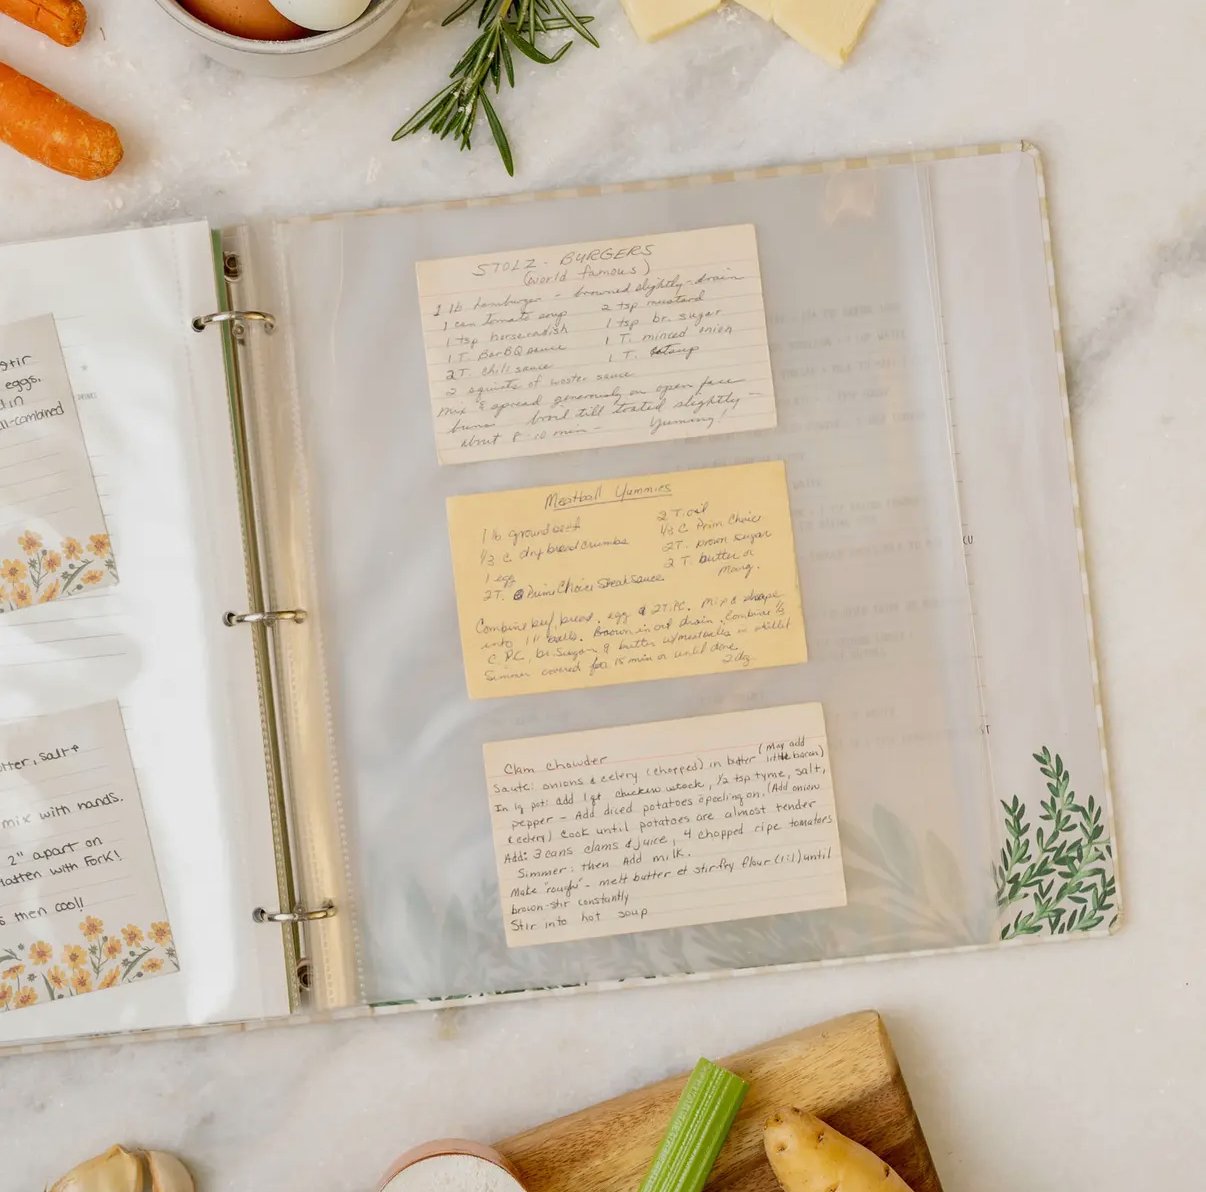 stir
eggs.
ll-combined
tter, salt +
mix with hands.
2" apart on
latten with Fork!
then cool!
STOLZ - BURGERS
(world famous)
1 lb hamburger - browned slightly - drain
1 can tomato soup 2 tsp mustard
1 tsp horseradish 1 tsp br. sugar
1 T. BarBQ sauce 1 T. minced onion
2 T. chili sauce 1 T. catsup
2 squirts of woster sauce
Mix & spread generously on open face
buns broil till toasted slightly -
about 8-10 min - Yummy!
Meatball Yummies
1 lb. ground beef 2 T. oil
1/3 c. dry bread crumbs 1/3 C. Prim Choice
1 egg 2 T. brown sugar
2 T. Prime Choice Steak Sauce 2 T. butter or
Marg.
Combine beef, bread, egg & 2T. P.C. Mix & shape
into 1" balls. Brown in oil drain. Combine 1/3
C. P.C, br. sugar, & butter w/meatballs in skillet
Simmer covered for 15 min or until done
2 dz.
Clam Chowder
(May add
Saute: onions & celery (chopped) in butter little bacon)
In lg pot: add 1 qt chicken stock, 1/2 tsp tyme, salt,
pepper - Add diced potatoes & peeling on. (Add onion
& celery) Cook until potatoes are almost tender
Add: 3 cans clams & juice, 4 chopped ripe tomatoes
Simmer: then Add milk.
Make "rough" - melt butter & stir fry flour (1:1) until
brown-stir constantly
Stir into hot soup